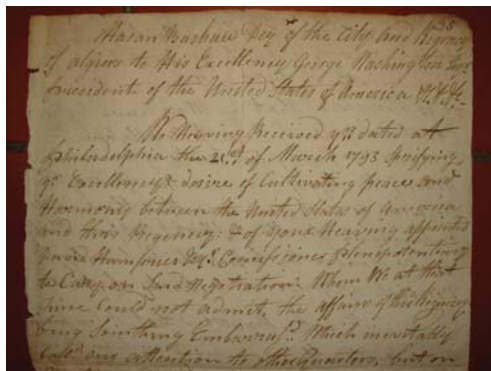 Hasan Bashaw Dey of the City and Regency
of algiers to His Excellency George Washington Esqr
President of the United States of America &c &c &c
We Heaving Received yrs dated at
Philadelphia the 21st of March 1793 Specifying
yr Excellencys desire of Cultivating peace and
Harmony between the United States of America
and this Regency: & of Your Heaving appointed
David Humphreys Esqr Commissioner plenipotentiary
to Carry on Said Negotiation Whom We at that
time Could not admit, the affairs of this Regency
being Something Embarassd Which inevitably
Calld our attention to other Quarters, but on